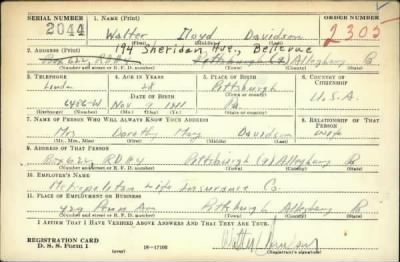 SERIAL NUMBER 1. NAME (Print) ORDER NUMBER
2044 Walter Lloyd Davidson 2305
(First) (Middle) (Last)
194 Sheridan Ave., Bellevue
2. ADDRESS (Print)
Box 622 RD#4 Pittsburgh (2) Allegheny Pa
(Number and street or R. F. D. number) (Town) (County) (State)
3. TELEPHONE 4. AGE IN YEARS 5. PLACE OF BIRTH 6. COUNTRY OF CITIZENSHIP
Linden 28 Pittsburgh
DATE OF BIRTH (Town or county) U.S.A.
6486-W Nov 9 1911 Pa.
(Exchange) (Number) (Mo.) (Day) (Yr.) (State or country)
7. NAME OF PERSON WHO WILL ALWAYS KNOW YOUR ADDRESS 8. RELATIONSHIP OF THAT PERSON
Mrs Dorothy May Davidson wife
(Mr., Mrs., Miss) (First) (Middle) (Last)
9. ADDRESS OF THAT PERSON
Box 622 RD#4 Pittsburgh (2) Allegheny Pa
(Number and street or R. F. D. number) (Town) (County) (State)
10. EMPLOYER'S NAME
Metropolitan Life Insurance Co.
11. PLACE OF EMPLOYMENT OR BUSINESS
429 Penn Ave Pittsburgh Allegheny Pa
(Number and street or R. F. D. number) (Town) (County) (State)
I AFFIRM THAT I HAVE VERIFIED ABOVE ANSWERS AND THAT THEY ARE TRUE.
REGISTRATION CARD
D. S. S. Form 1 (over) 16—17105 (Registrant's signature)